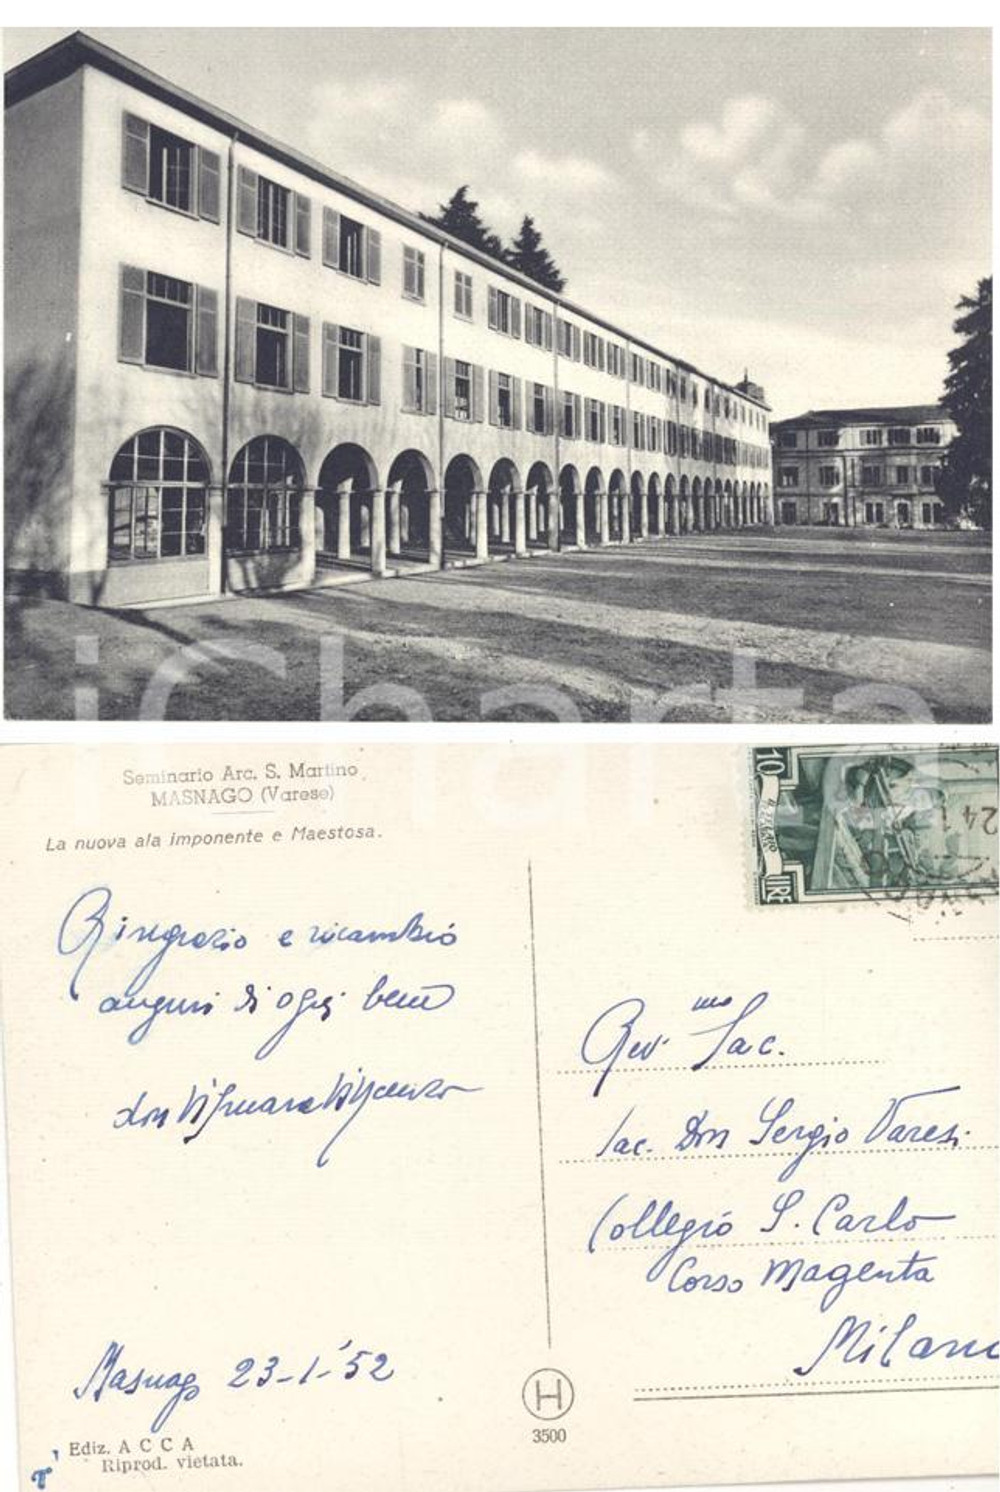 iCharta
Seminario Arc. S. Martino
MASNAGO (Varese)
La nuova ala imponente e Maestosa.
Ringrazio e ricambio
auguri di ogni bene
don Vincenzo
10
LIRE
24
Rev.mo Sac.
Sac. Don Sergio Varesi
Collegio S. Carlo
Corso Magenta
Milano
Masnago 23-1-'52
Ediz. ACCA
Riprod. vietata.
H
3500